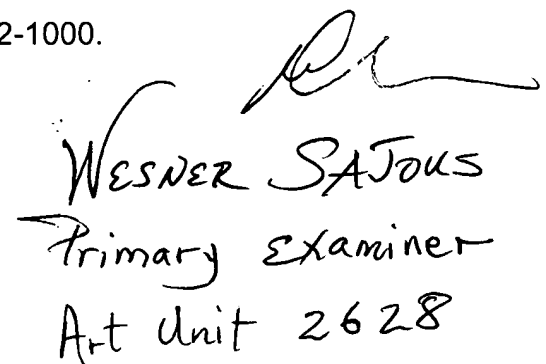 2-1000.
WESNER SAJOUS
Primary Examiner
Art Unit 2628